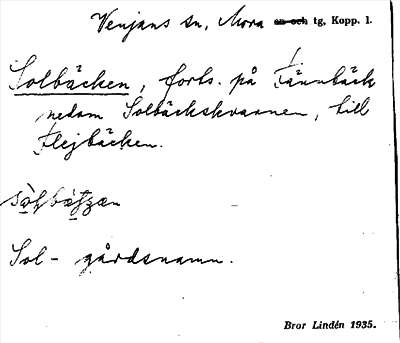 Venjans sn, Mora an och tg, Kopp. l.
Solbäcken, forts. på Tännbäck
nedom Solbäckskvarnen, till
Flejbäcken.
Sol- gårdsnamn.
Bror Lindén 1935.